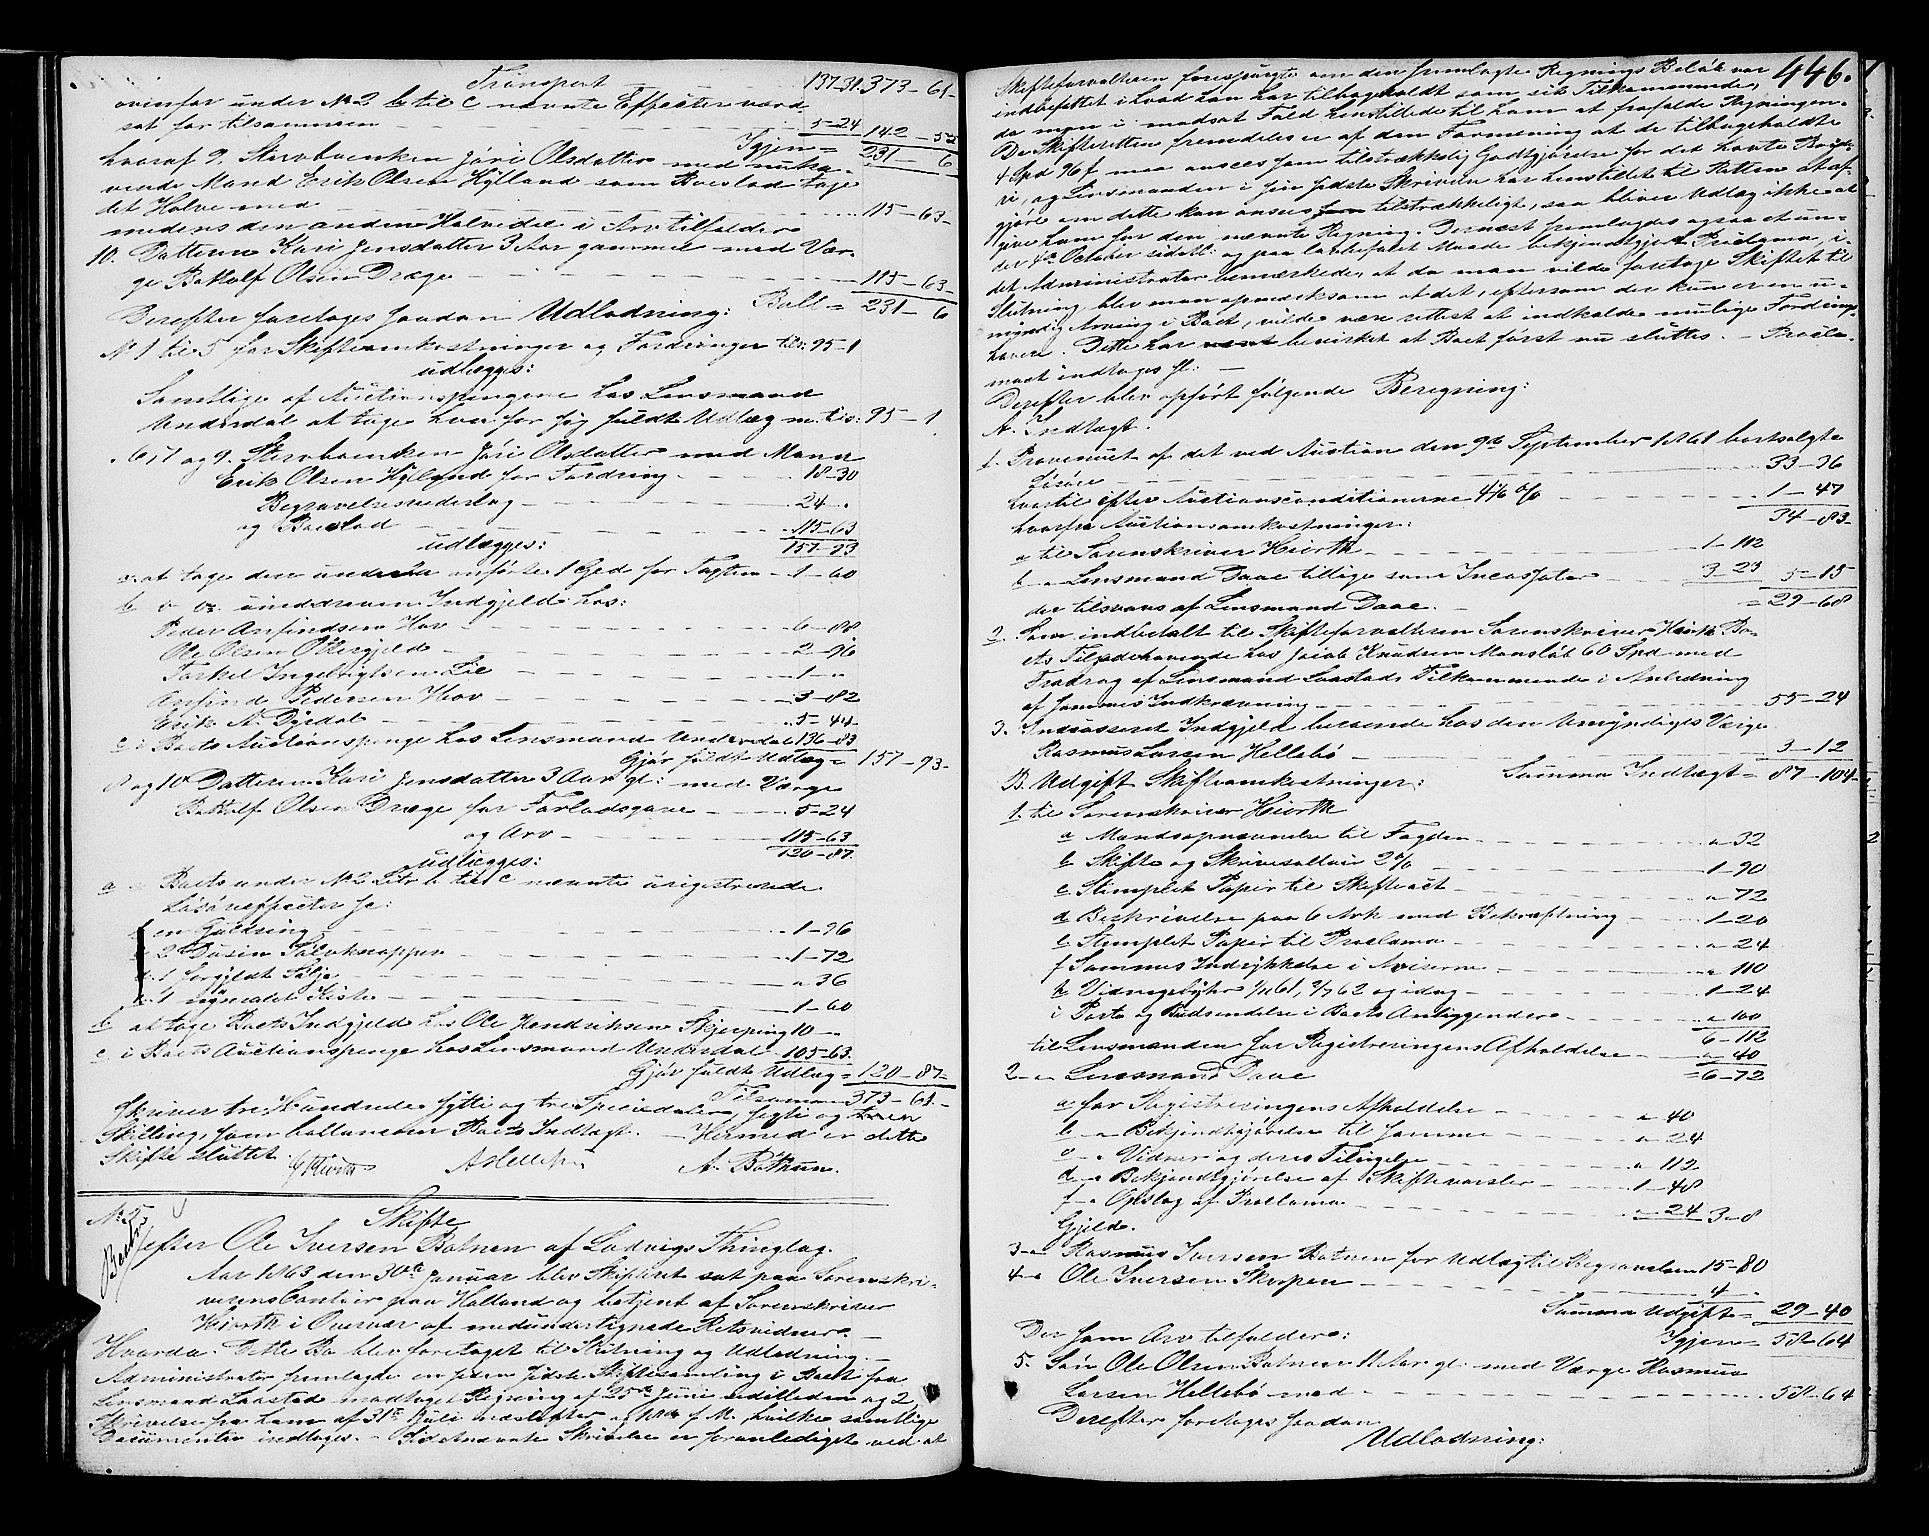 Transport 137-31. 373-61-
ovenfor under No 2 b til c nævnte Effecter værd-
sat for tilsammen 5-24 142-55
Igjen = 231-6
hvoraf 9. Stervboenken Jöri Olsdatter med nuhæ-
vende Mand Erik Olsen Hylland som Boeslod tage
det Halve med 115-63-
medens den anden Halvedel i Arv tilfalder
10. Datteren Kari Jensdatter 3 Aar gammel med Vær-
ge Botholf Olsen Dræge 115-63-
Ball = 231-6
Derefter foretoges saadan Udlodning:
No 1 til 5 for Skifteomkostninger og Fordringer tils: 95-1
udlægges:
Samtlige af Auctionspengene hos Lensmand
Underdal at tage hver for sig fuldt Udlæg m. tils: 95-1
6, 7 og 9. Stervboenken Jöri Olsdatter med Mand
Erik Olsen Hylland for Fordring 18-30
Begravelsesudlæg 24-
og Boeslod 115-63
udlægges: 157-93
a. at tage den under anförte 1 Gjed for Taxten 1-60
b uinddreven Indgjeld hos:
Peder Anfindsen Hov 6-88
Ole Olsen Ottersgjeld 2-96
Torkel Ingebrigtsen Lie 1-
Anfind Pedersen Hov 3-82
Erik A. Dyrdal 5-44
c i Boets Auctionspenge hos Lensmand Underdal 136-83
Gjør fuldt Udlæg = 157-93-
8 og 10 Datteren Kari Jensdatter 3 Aar gl: med Værge
Botholf Olsen Dræge for Forlodsgave 5-24
og Arv 115-63
udlægges: 120-87
a Boets under No 2 Litr b til c nævnte uregistrerede
Lösöreffecter s:
en Guldring 1-96
2 Dusin Sølvknapper 1-72
d 1 forgyldt Sölje " 36
e 1 umalet Kiste 1-60
b at tage Boets Indgjeld hos Ole Hendriksen Skjerping 10-
c i Boets Auctionspenge hos Lensmand Underdal 105-63.
Gjør fuldt Udlæg = 120-87-
Tilsammen 373-61.-
Skriver tre Hundrede sytti og tre Speciedaler, sexti og een
Skilling, som ballancerer Boets Indtægt. - Hermed er dette
Skifte sluttet.
Hiorth A. Böthun.
No 25
Skifte
efter Ole Iversen Botnen af Ladvigs Thinglag.
Aar 1863 den 30te Januar blev Skifteret sat paa Sorenskri-
verens Contoir paa Holland og betjent af Sorenskriver
Hiorth i Overvær af medundertegnede Retsvidner. -
Hvorda: Dette Bo blev foretaget til Slutning og Udlodning. -
Administrator fremlagde en siden sidste Skiftesamling i Boet fra
Lensmand Laastad modtaget Regning af 25de Juni udilleden og 2,
Skrivelse fra ham af 31te Juli næstefter og 18de f. M., hvilke samtlige
Documenter indtages. - Sidstnævnte Skrivelse er foranlediget ved at
446.
Skifteforvalteren forespurgte om den fremlagte Regnings Belöb var
indbefattet i hvad han har tilbageholdt som sit Tilkommende,
da man i modsat Fald henstillede til ham at frafalde Regningen.
Da Skifteretten fremdeles er af den Formening at de tilbageholdte
4 Spd 96 s maa ansees som tilstrækkelig Godtgjörelse for det havte Bryde-
ri, og Lensmanden i sin sidste Skrivelse har henstillet til Retten at af-
gjöre om dette kan ansees tilstrækkeligt, saa bliver Udlæg ikke at
give ham for den nævnte Regning. Dernæst fremlagdes ogsaa et un-
der 4de October sidstl: og paa lovbefalet Maade bekjendtgjort Proclama, i-
det Administrator bemærkede, at da man vilde foretage Skiftet til
Slutning blev man opmærksom at det, eftersom der kun er en u-
myndig Arving i Boet, vilde være rettest at indkalde mulige Fordrings-
havere. Dette har bevirket at Boet först nu sluttes. - Procla-
maet indtages s: -
Derefter blev opfört fölgende Beregning:
A. Indtægt.
1. Provenuet af det ved Auction den 9de September 1861 bortsolgte
Lösöre 33-36
hvortil efter Auctionsconditionerne 4 1/6 % 1-47
34-83-
hvorfra Auctionsomkostninger:
a til Sorenskriver Hiorth 1-112
b - Lensmand Daae tillige som Incassator 3-23 5-15
der tilsvares af Lensmand Daae. = 29-68
2. Som indbetalt til Skifteforvalteren Sorenskriver Hiorth Bo-
ets Tilgodehavende hos Jacob Knudsen Monslöb 60 Spd med
Fradrag af Lensmand Laastads Tilkommende i Anledning
af sammes Indkrævning 55-24
3. Incasseret Indgjeld beroende hos den Umyndiges Værge
Rasmus Larsen Hellebö 3-12
Summa Indtægt = 87-104-
B. Udgift Skifteomkostninger:
1. til Sorenskriver Hiorth
a Mandsopnævnelse til Fogden " 32
b Skifte og Skriversallair 2 % 1-90
c Stemplet Papir til Skifteact " 72
d Beskrivelse paa 6 Ark med Bekræftning 1-20
e Stemplet Papir til Proclama " 24
f Sammes Indrykkelse i Aviserne " 110
h Vidnegebyhr 1/11 61, 2/7 62 og idag 1-24
i Porto og Budsendelse i Boets Anliggender " 100
6-112
til Lensmanden for Registreringens Afholdelse " 40
= 6-72
2 - Lensmand Daae
a for Registreringens Afholdelse " 40
b - Bekjendtgjörelse til samme " 24
c - Vidner og deres Tilsigelse " 112
d - Bekjendtgjörelse af Skiftevarsler 1-48
f - Opslag af Proclama " 24 3-8
Gjeld.
3 - Rasmus Iversen Botnen for Udlæg til Begravelsen 15-80
4 - Ole Iversen Skorpen 4 -
Summa Udgift = 29-40
Igjen = 58-64
Der som Arv tilfalder:
5. Sön Ole Olsen Botnen 11 Aar gl: med Værge Rasmus
Larsen Hellebö med 58-64
Derefter foretoges saadan
Udlodning: